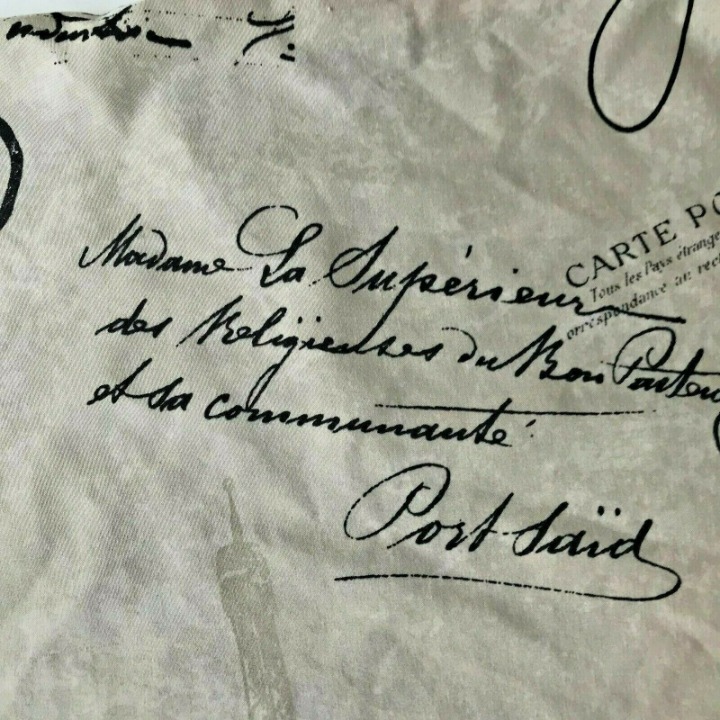 Madame La Supérieur
des Religieuses du Bon Pasteu
et sa communauté
Port-Saïd
CARTE PO
Tous les Pays étrange
orrespondance au rec